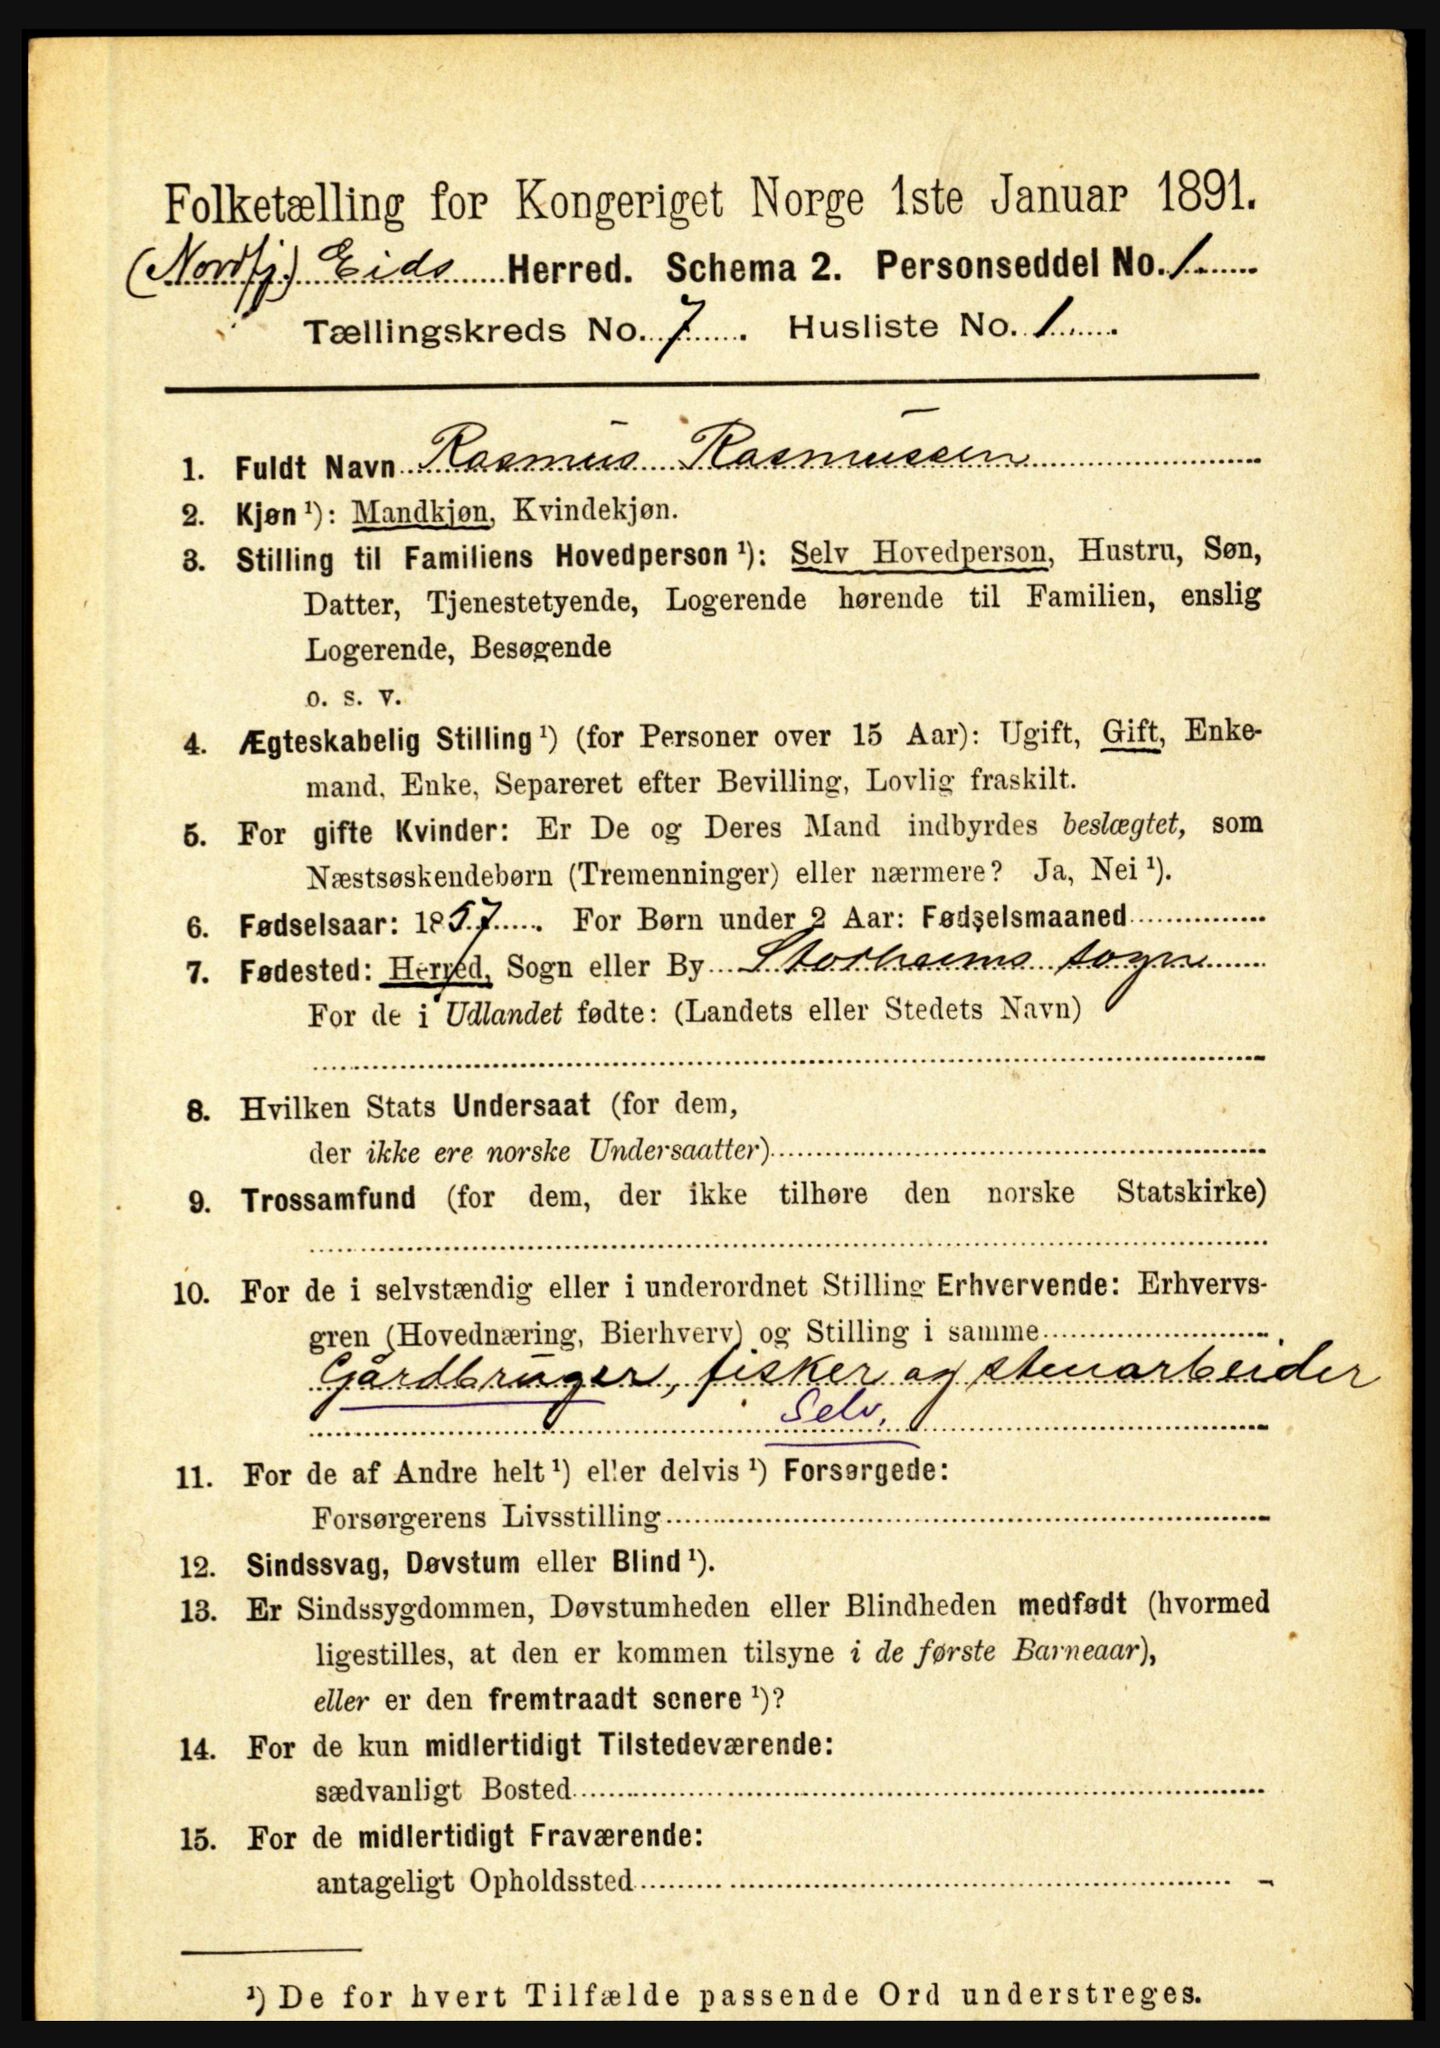 Folketælling for Kongeriget Norge 1ste Januar 1891.
(Nordfj.) Eids Herred. Schema 2. Personseddel No. 1
Tællingskreds No. 7. Husliste No. 1.
1. Fuldt Navn Rasmus Rasmussen
2. Kjøn ¹): Mandkjøn, Kvindekjøn.
3. Stilling til Familiens Hovedperson ¹): Selv Hovedperson, Hustru, Søn,
Datter, Tjenestetyende, Logerende hørende til Familien, enslig
Logerende, Besøgende
o. s. v.
4. Ægteskabelig Stilling ¹) (for Personer over 15 Aar): Ugift, Gift, Enke-
mand, Enke, Separeret efter Bevilling, Lovlig fraskilt.
5. For gifte Kvinder: Er De og Deres Mand indbyrdes beslægtet, som
Næstsøskendebørn (Tremenninger) eller nærmere? Ja, Nei ¹).
6. Fødselsaar: 1857. For Børn under 2 Aar: Fødselsmaaned
7. Fødested: Herred, Sogn eller By Storheims sogn
For de i Udlandet fødte: (Landets eller Stedets Navn)
8. Hvilken Stats Undersaat (for dem,
der ikke ere norske Undersaatter)
9. Trossamfund (for dem, der ikke tilhøre den norske Statskirke)
10. For de i selvstændig eller i underordnet Stilling Erhvervende: Erhvervs-
gren (Hovednæring, Bierhverv) og Stilling i samme
Gårdbruger, fisker og stenarbeider
Selv.
11. For de af Andre helt ¹) eller delvis ¹) Forsørgede:
Forsørgerens Livsstilling
12. Sindssvag, Døvstum eller Blind ¹).
13. Er Sindssygdommen, Døvstumheden eller Blindheden medfødt (hvormed
ligestilles, at den er kommen tilsyne i de første Barneaar),
eller er den fremtraadt senere ¹)?
14. For de kun midlertidigt Tilstedeværende:
sædvanligt Bosted
15. For de midlertidigt Fraværende:
antageligt Opholdssted
¹) De for hvert Tilfælde passende Ord understreges.